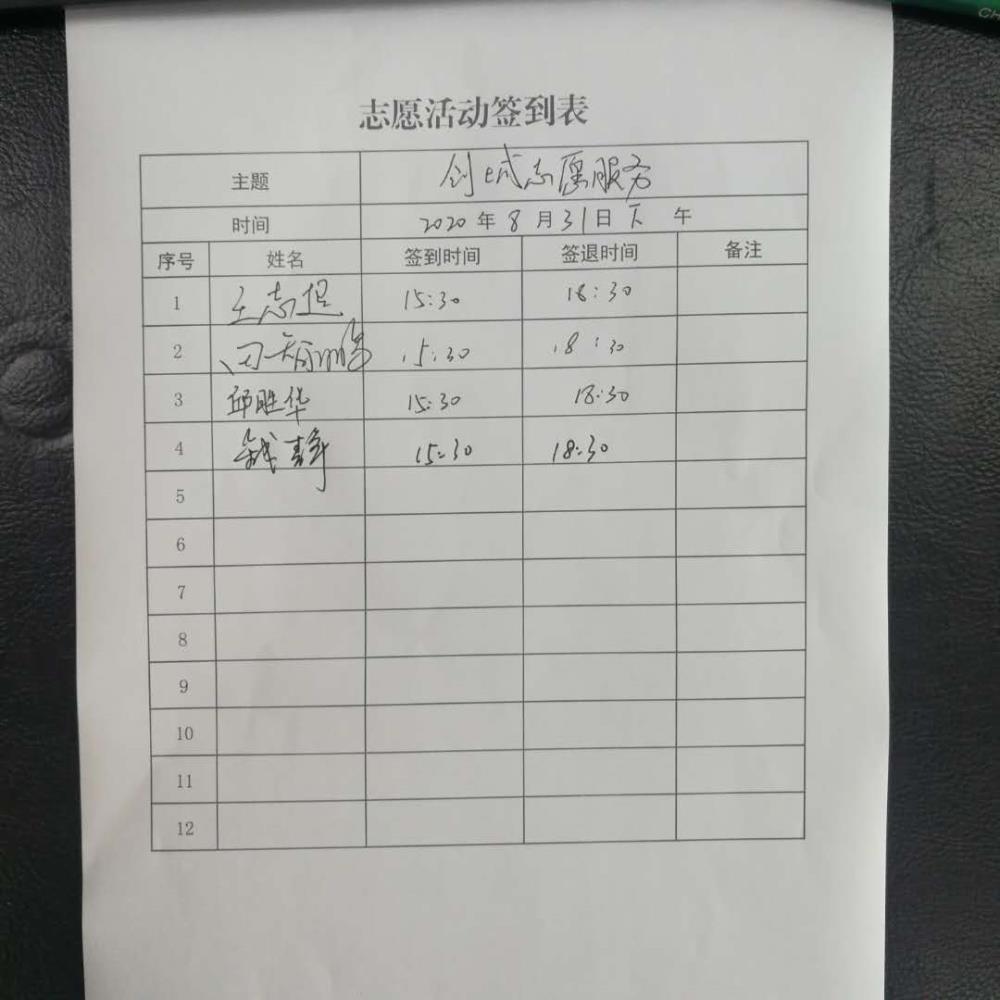 志愿活动签到表
主题 创城志愿服务
时间 2020年8月31日下午
序号 姓名 签到时间 签退时间 备注
1 王志坚 15:30 18:30
2 15:30 18:30
3 邱胜华 15:30 18:30
4 钱静 15:30 18:30
5
6
7
8
9
10
11
12